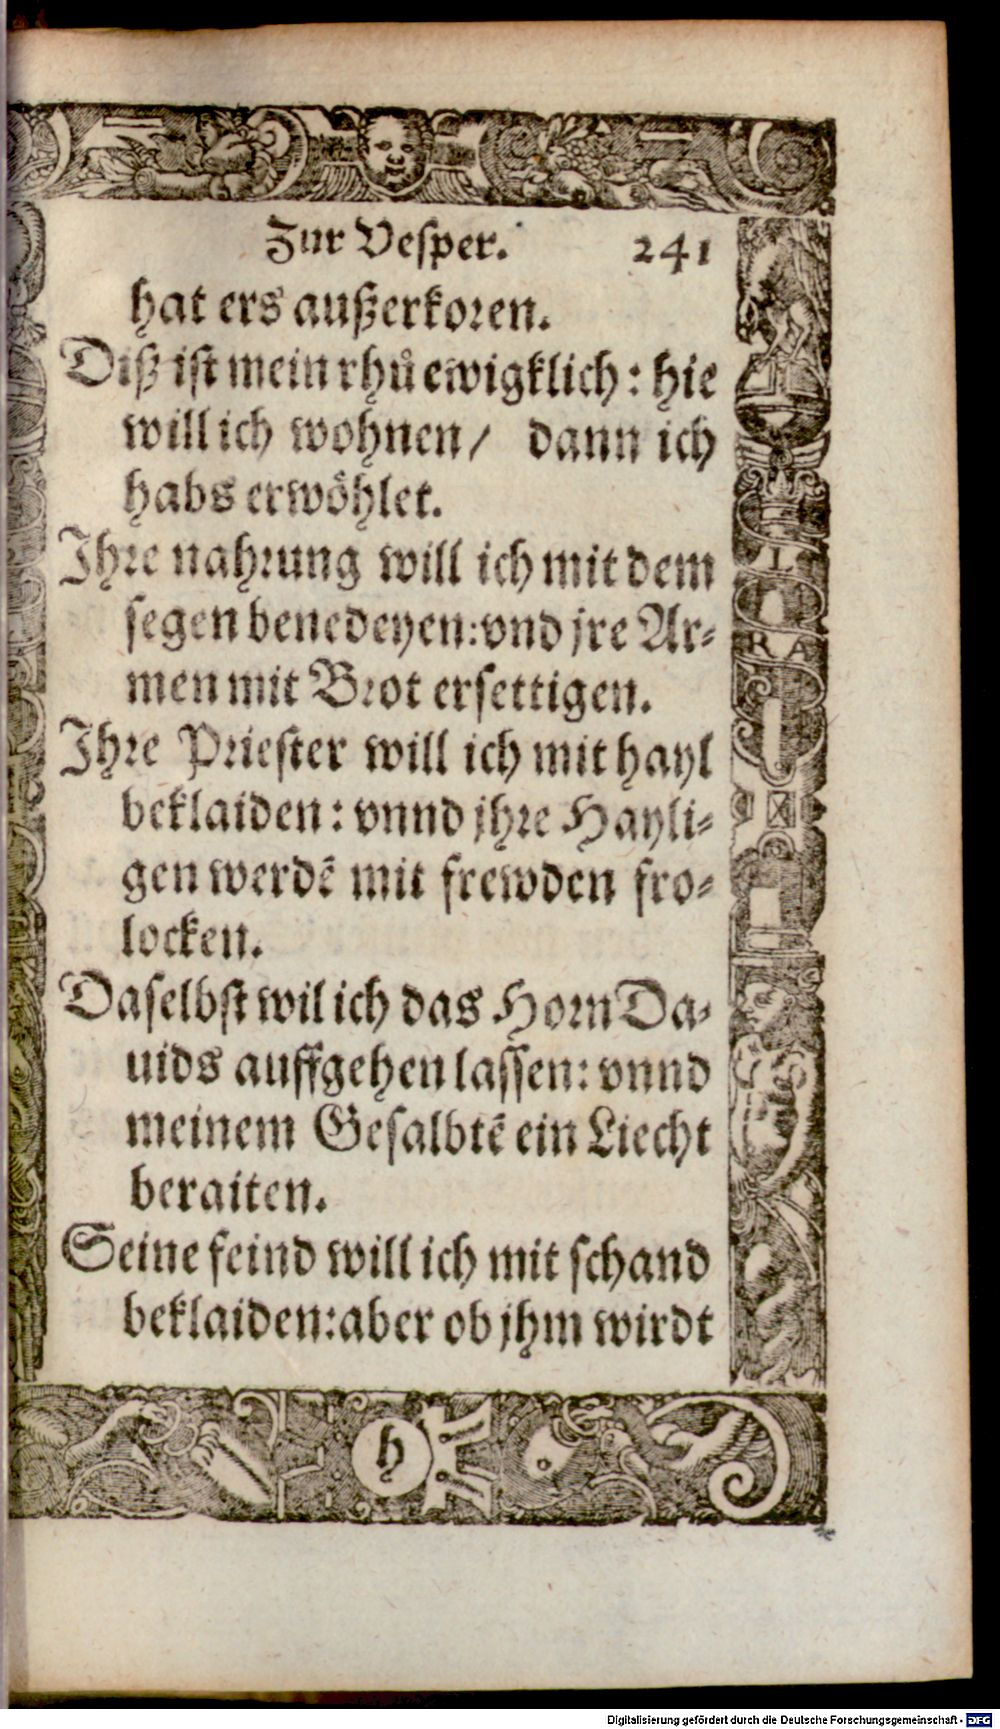 Zur Vesper. 241
hat ers außerkoren.
Diß ist mein rhů ewigklich: hie
will ich wohnen/ dann ich
habs erwöhlet.
Ihre nahrung will ich mit dem
segen benedeyen: vnd jre Ar⸗
men mit Brot ersettigen.
Ihre Priester will ich mit hayl
beklaiden: vnnd jhre Hayli⸗
gen werdẽ mit frewden fro⸗
locken.
Daselbst wil ich das Horn Da⸗
uids auffgehen lassen: vnnd
meinem Gesalbtẽ ein Liecht
beraiten.
Seine feind will ich mit schand
beklaiden: aber ob jhm wirdt
L
RA
h
Digitalisierung gefördert durch die Deutsche Forschungsgemeinschaft - DFG